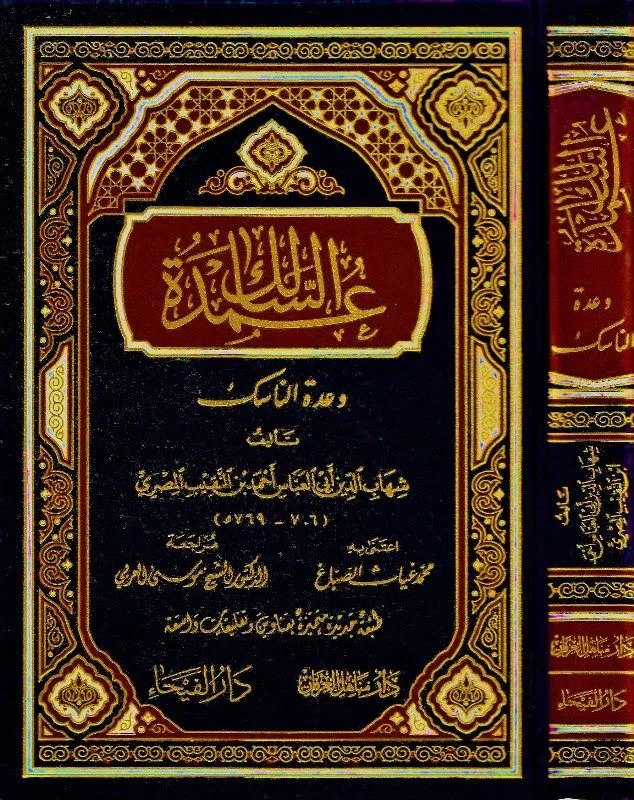 عمدة السالك
وعدة الناسك
تأليف
شهاب الدين أبي العباس أحمد بن النقيب المصري
(٧٠٦ - ٧٦٩ه)
اعتنى به
مراجعة
محمد غياث الصباغ
الدكتور الشيخ موسى العربي
طبعة جديدة مميزة بعناوين وتعليقات واسعة
دار مناهل العرفان
دار الفيحاء
عمدة السالك
وعدة
الناسك
تأليف
شهاب الدين أبي العباس أحمد
ابن النقيب المصري
دار مناهل العرفان
دار الفيحاء